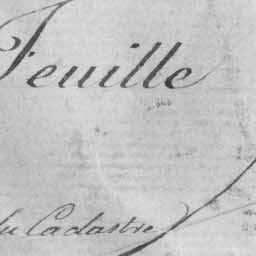 Feuille
du Cadastre